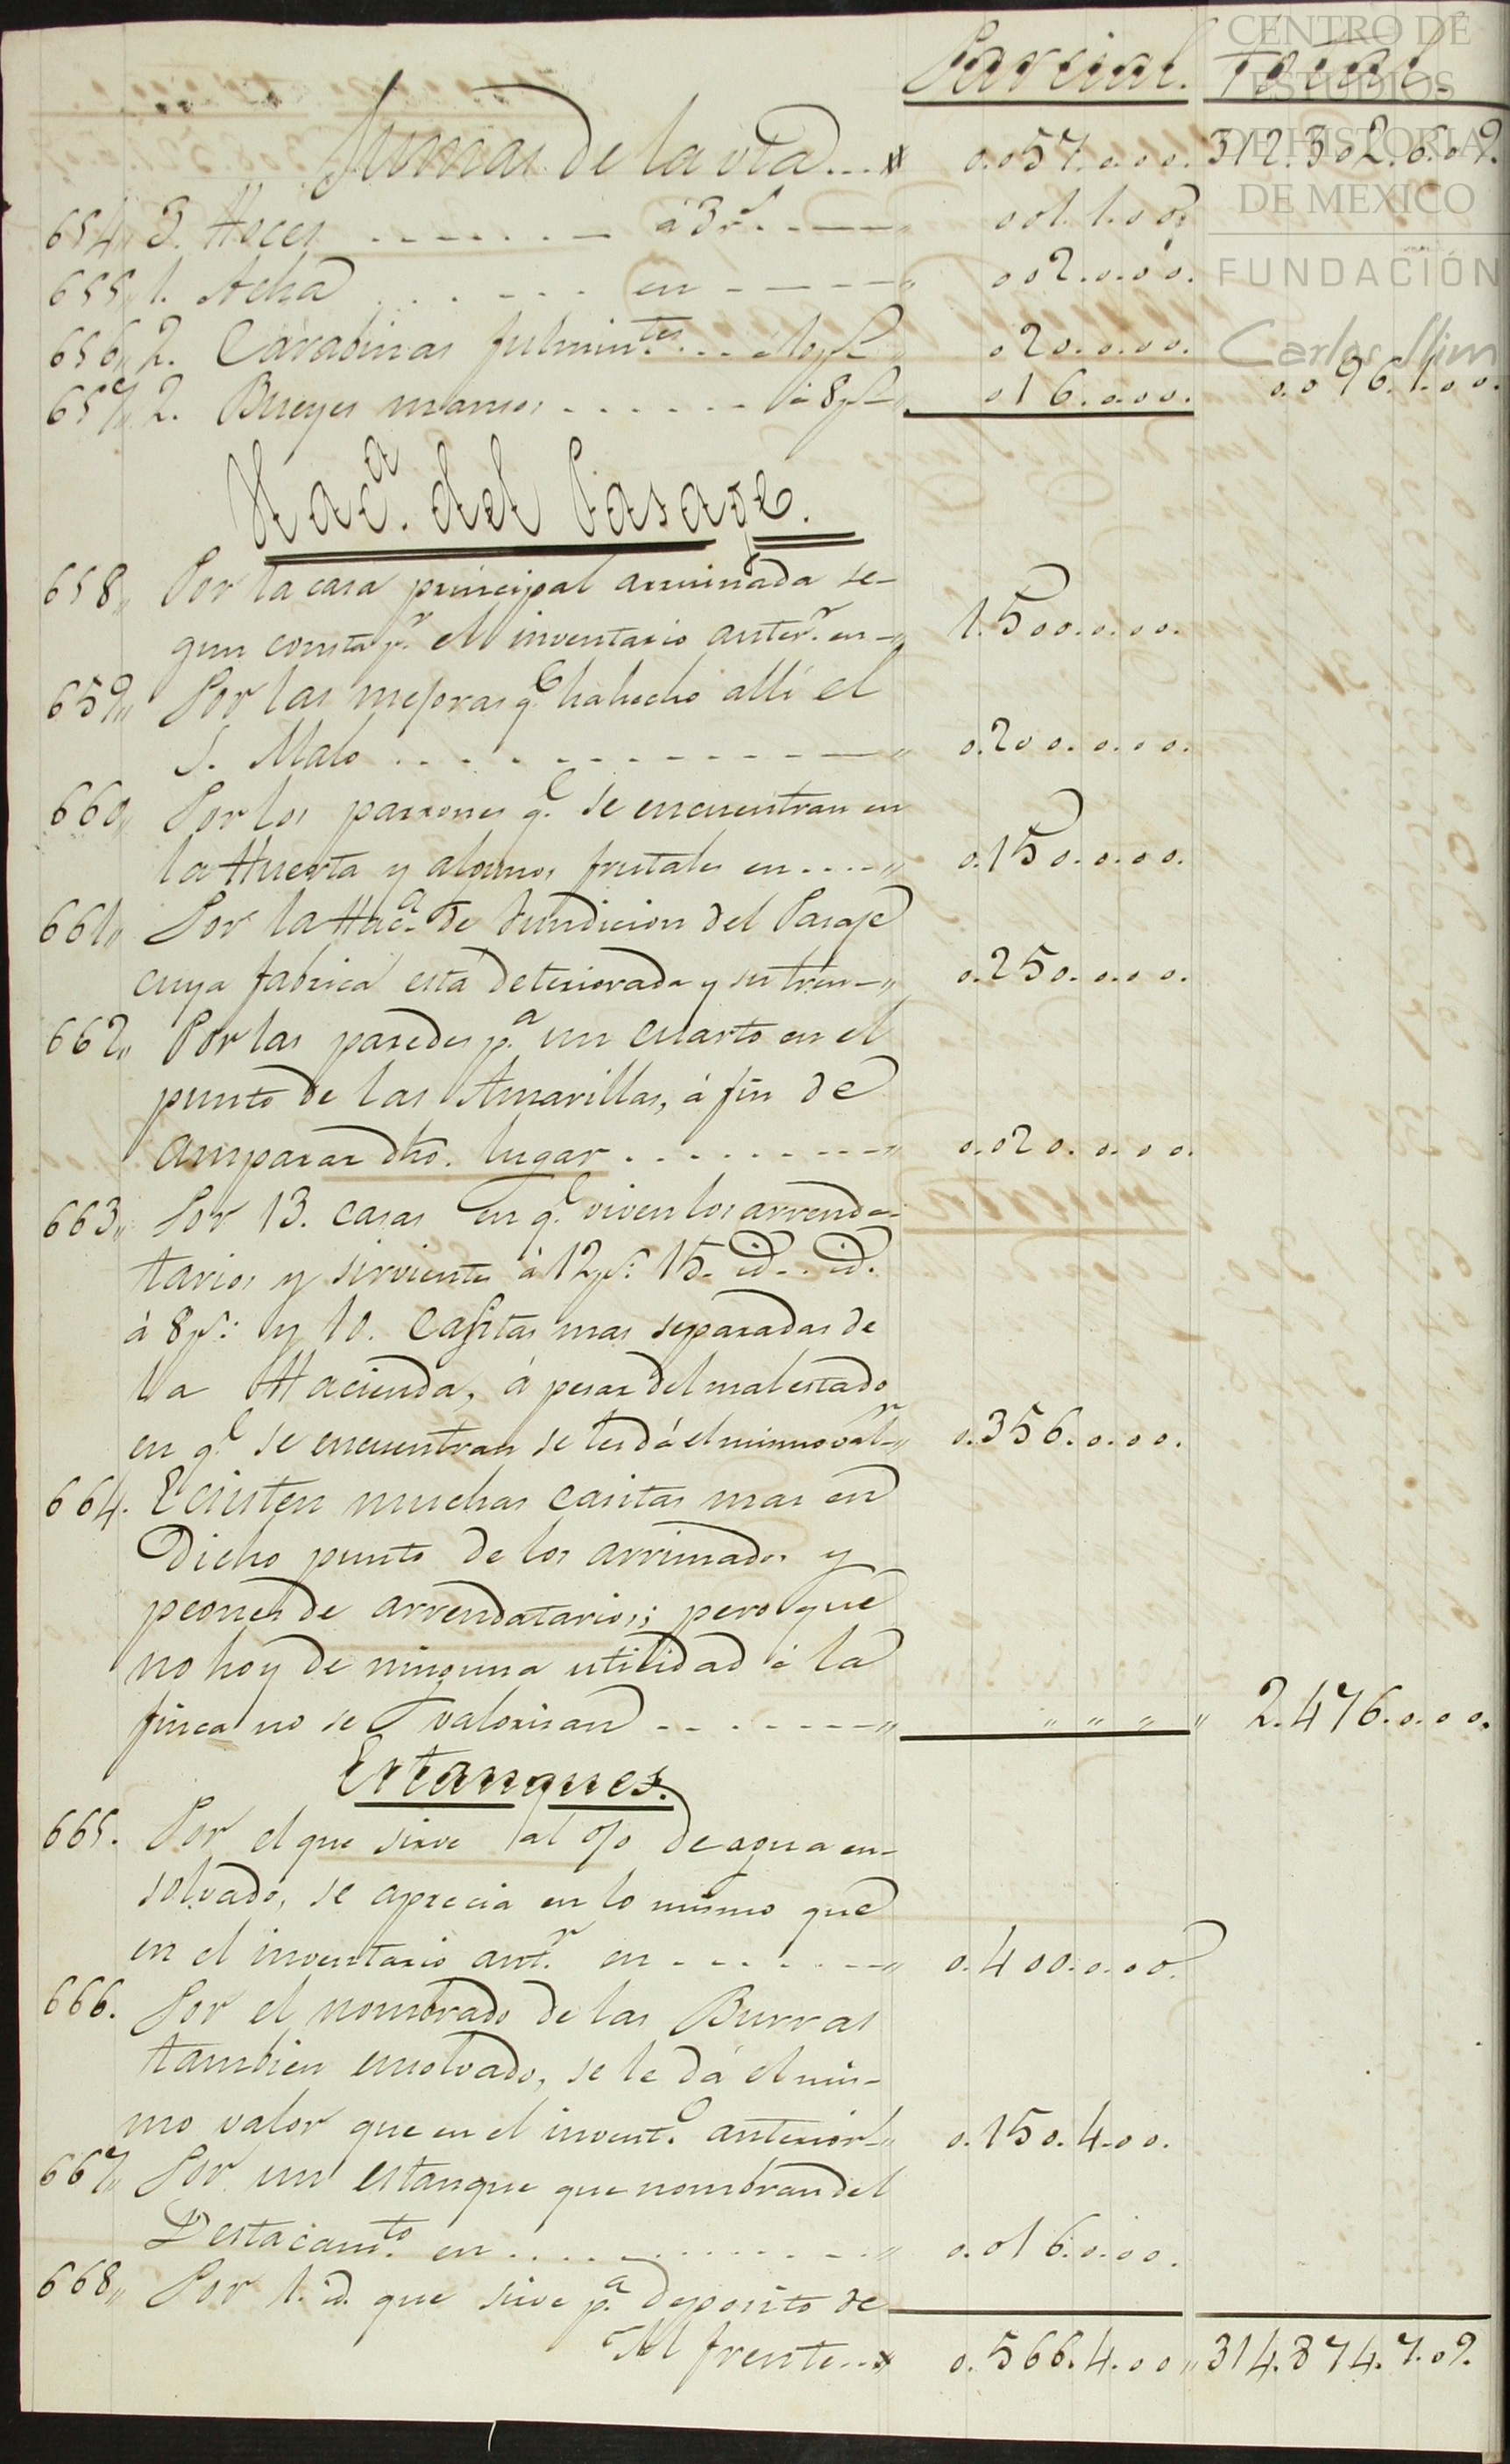 Parcial. Total.
Sumas de la vta... 0.057.0.0.0. 312.302.6.09.
654,, 3. Hoces ....... á 3 r.s .. 001.1.00.
655,, 1. Acha ...... en ----- 002.0.00.
656,, 2. Carabinas fulmin.tes ... á 10 p.s 020.0.00.
657,, 2. Bueyes mansos ...... á 8 p.s 016.0.00. 0.096.1.00.
Hac.a del Pasaje.
658,, Por la casa principal arruinada se-
gun consta p.r el inventario anter.r en-,, 1.500.0.00.
659,, Por las mejoras q.e ha hecho allí el
S. Malo ............ 0.200.0.00.
660,, Por los parrones q.e se encuentran en
la Huerta y algunos frutales en....,, 0.150.0.00.
661,, Por la Hac.a de fundicion del Pasaje
cuya fabrica está deteriorada y sin tren-,, 0.250.0.00.
662,, Por las paredes p.a un cuarto en el
punto de las Amarillas, á fin de
amparar dho. lugar ........,, 0.020.0.00.
663,, Por 13. casas en q.e viven los arrenda-
tarios y sirvientes á 12 p.s 15. id.. id.
á 8 p.s y 10. casitas mas separadas de
la Hacienda, á pesar del mal estado
en q.e se encuentran se les dá el mismo val.r,, 0.356.0.00.
664. Ecisten muchas casitas mas en
Dicho punto de los arrimados y
peones de arrendatarios; pero que
no hoy de ninguna utilidad á la
finca no se valorisan .......,, ,, ,, ,, ,, 2.476.0.00.
Estanques.
665. Por el que sirve al ojo de agua en-
solvado, se aprecia en lo mismo que
en el inventario ant.r en .......,, 0.400.0.00.
666. Por el nombrado de las Burras
tambien ensolvado, se le dá el mis-
mo valor que en el invent.o anterior-,, 0.150.4.00.
667,, Por un estanque que nombran del
Destacam.to en ............,, 0.016.0.00.
668,, Por 1. id. que sirve p.a deposito de
Al frente.. 0.566.4.00,, 314.874.7.09.
CENTRO DE
ESTUDIOS
DE HISTORIA
DE MEXICO
FUNDACIÓN
Carlos Slim